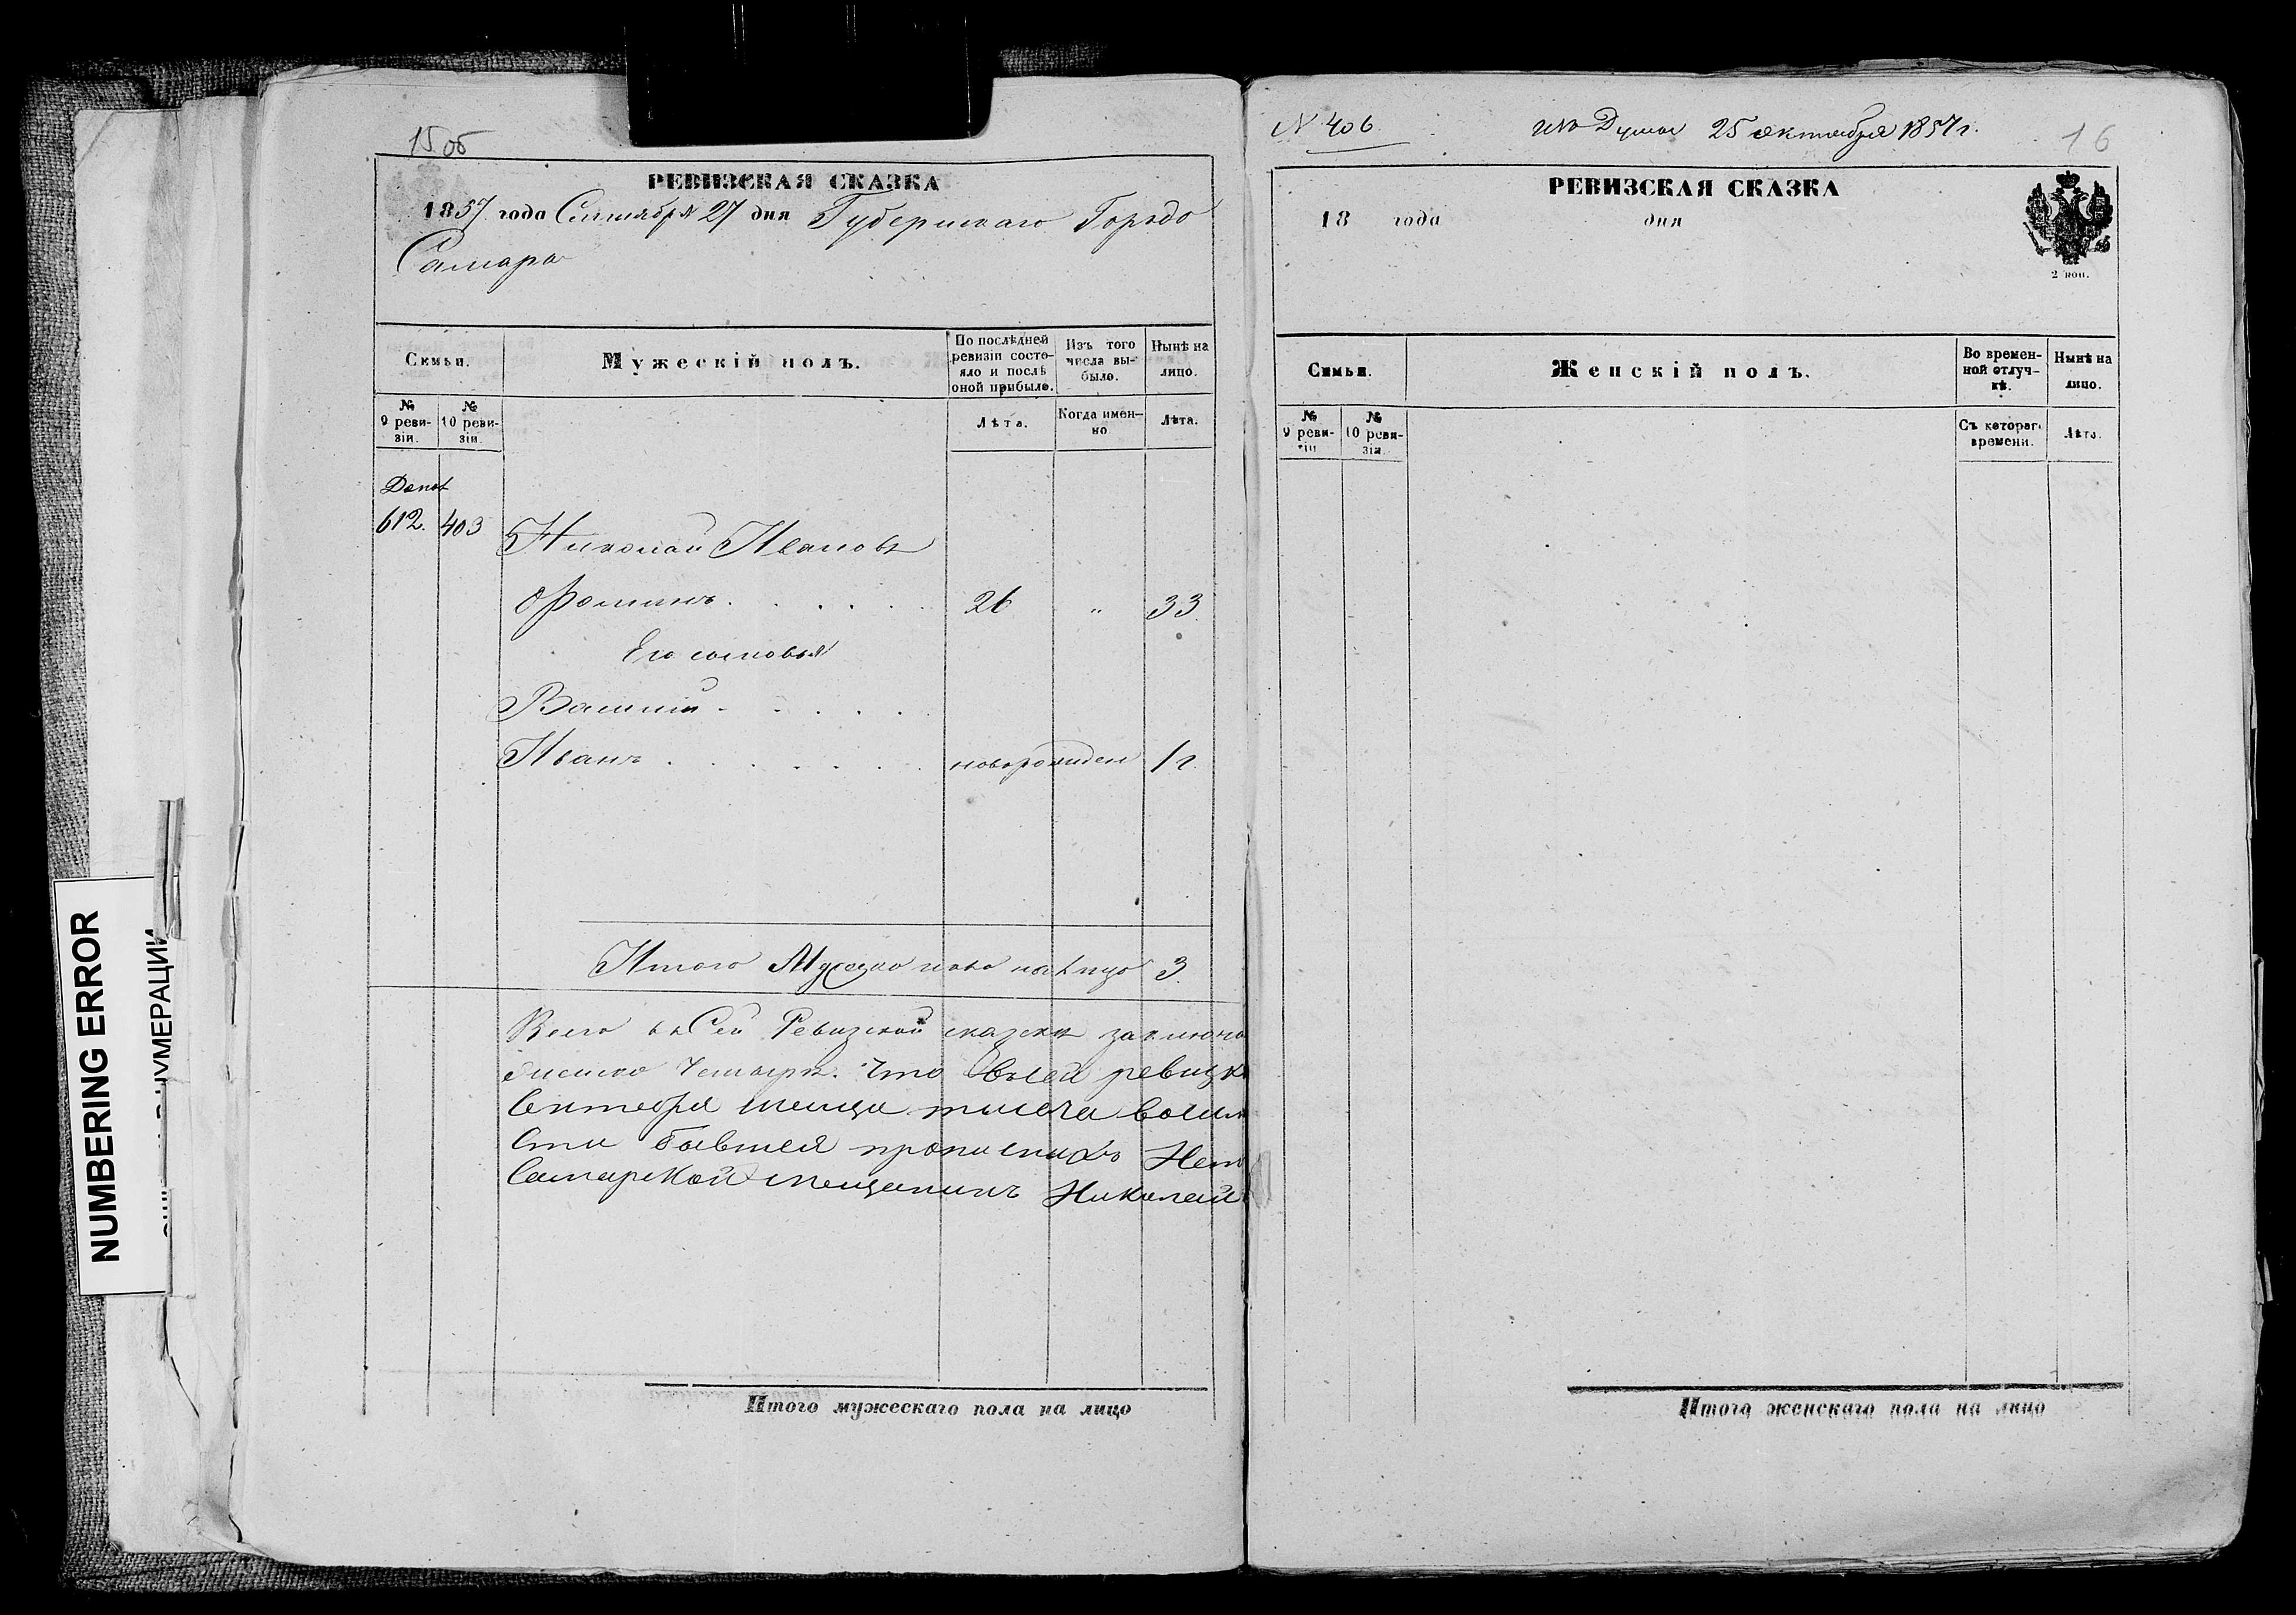 15 об
РЕВИЗСКАЯ СКАЗКА
1857 года Сентября 27 дня Губернскаго Города
Самары
Семьи.
Мужескій полъ.
По послѣдней ревизіи состояло и послѣ оной прибыло.
Изъ того числа выбыло.
Нынѣ на лицо.
№ 9 ревизіи.
№ 10 ревизіи.
Лѣта.
Когда именно
Лѣта.
Допол
612. 403
Николай Ивановъ
Фоминъ . . . . . 26 „ 33.
Его сыновья
Василій . . . . .
Иванъ . . . . . . . новорожден 1 г.
Итого Мужеско пола на лицо 3.
Всего въ Сей Ревизской сказке заключа
Четыри. Что въ сей ревизк
Сентября месица тысеча восим
бывшея прописныхъ Нет
Самарской мещанинъ Николай
Итого мужескаго пола на лицо
NUMBERING ERROR
НУМЕРАЦИИ
N 406.
изъ Думы 25 октября 1857 г.
16
РЕВИЗСКАЯ СКАЗКА
18 года дня
2 коп.
Семьи.
Женскій полъ.
Во временной отлучкѣ.
Нынѣ на лицо.
№ 9 ревизіи
№ 10 ревизіи.
Съ котораго времени.
Лѣта.
Итого женскаго пола на лицо